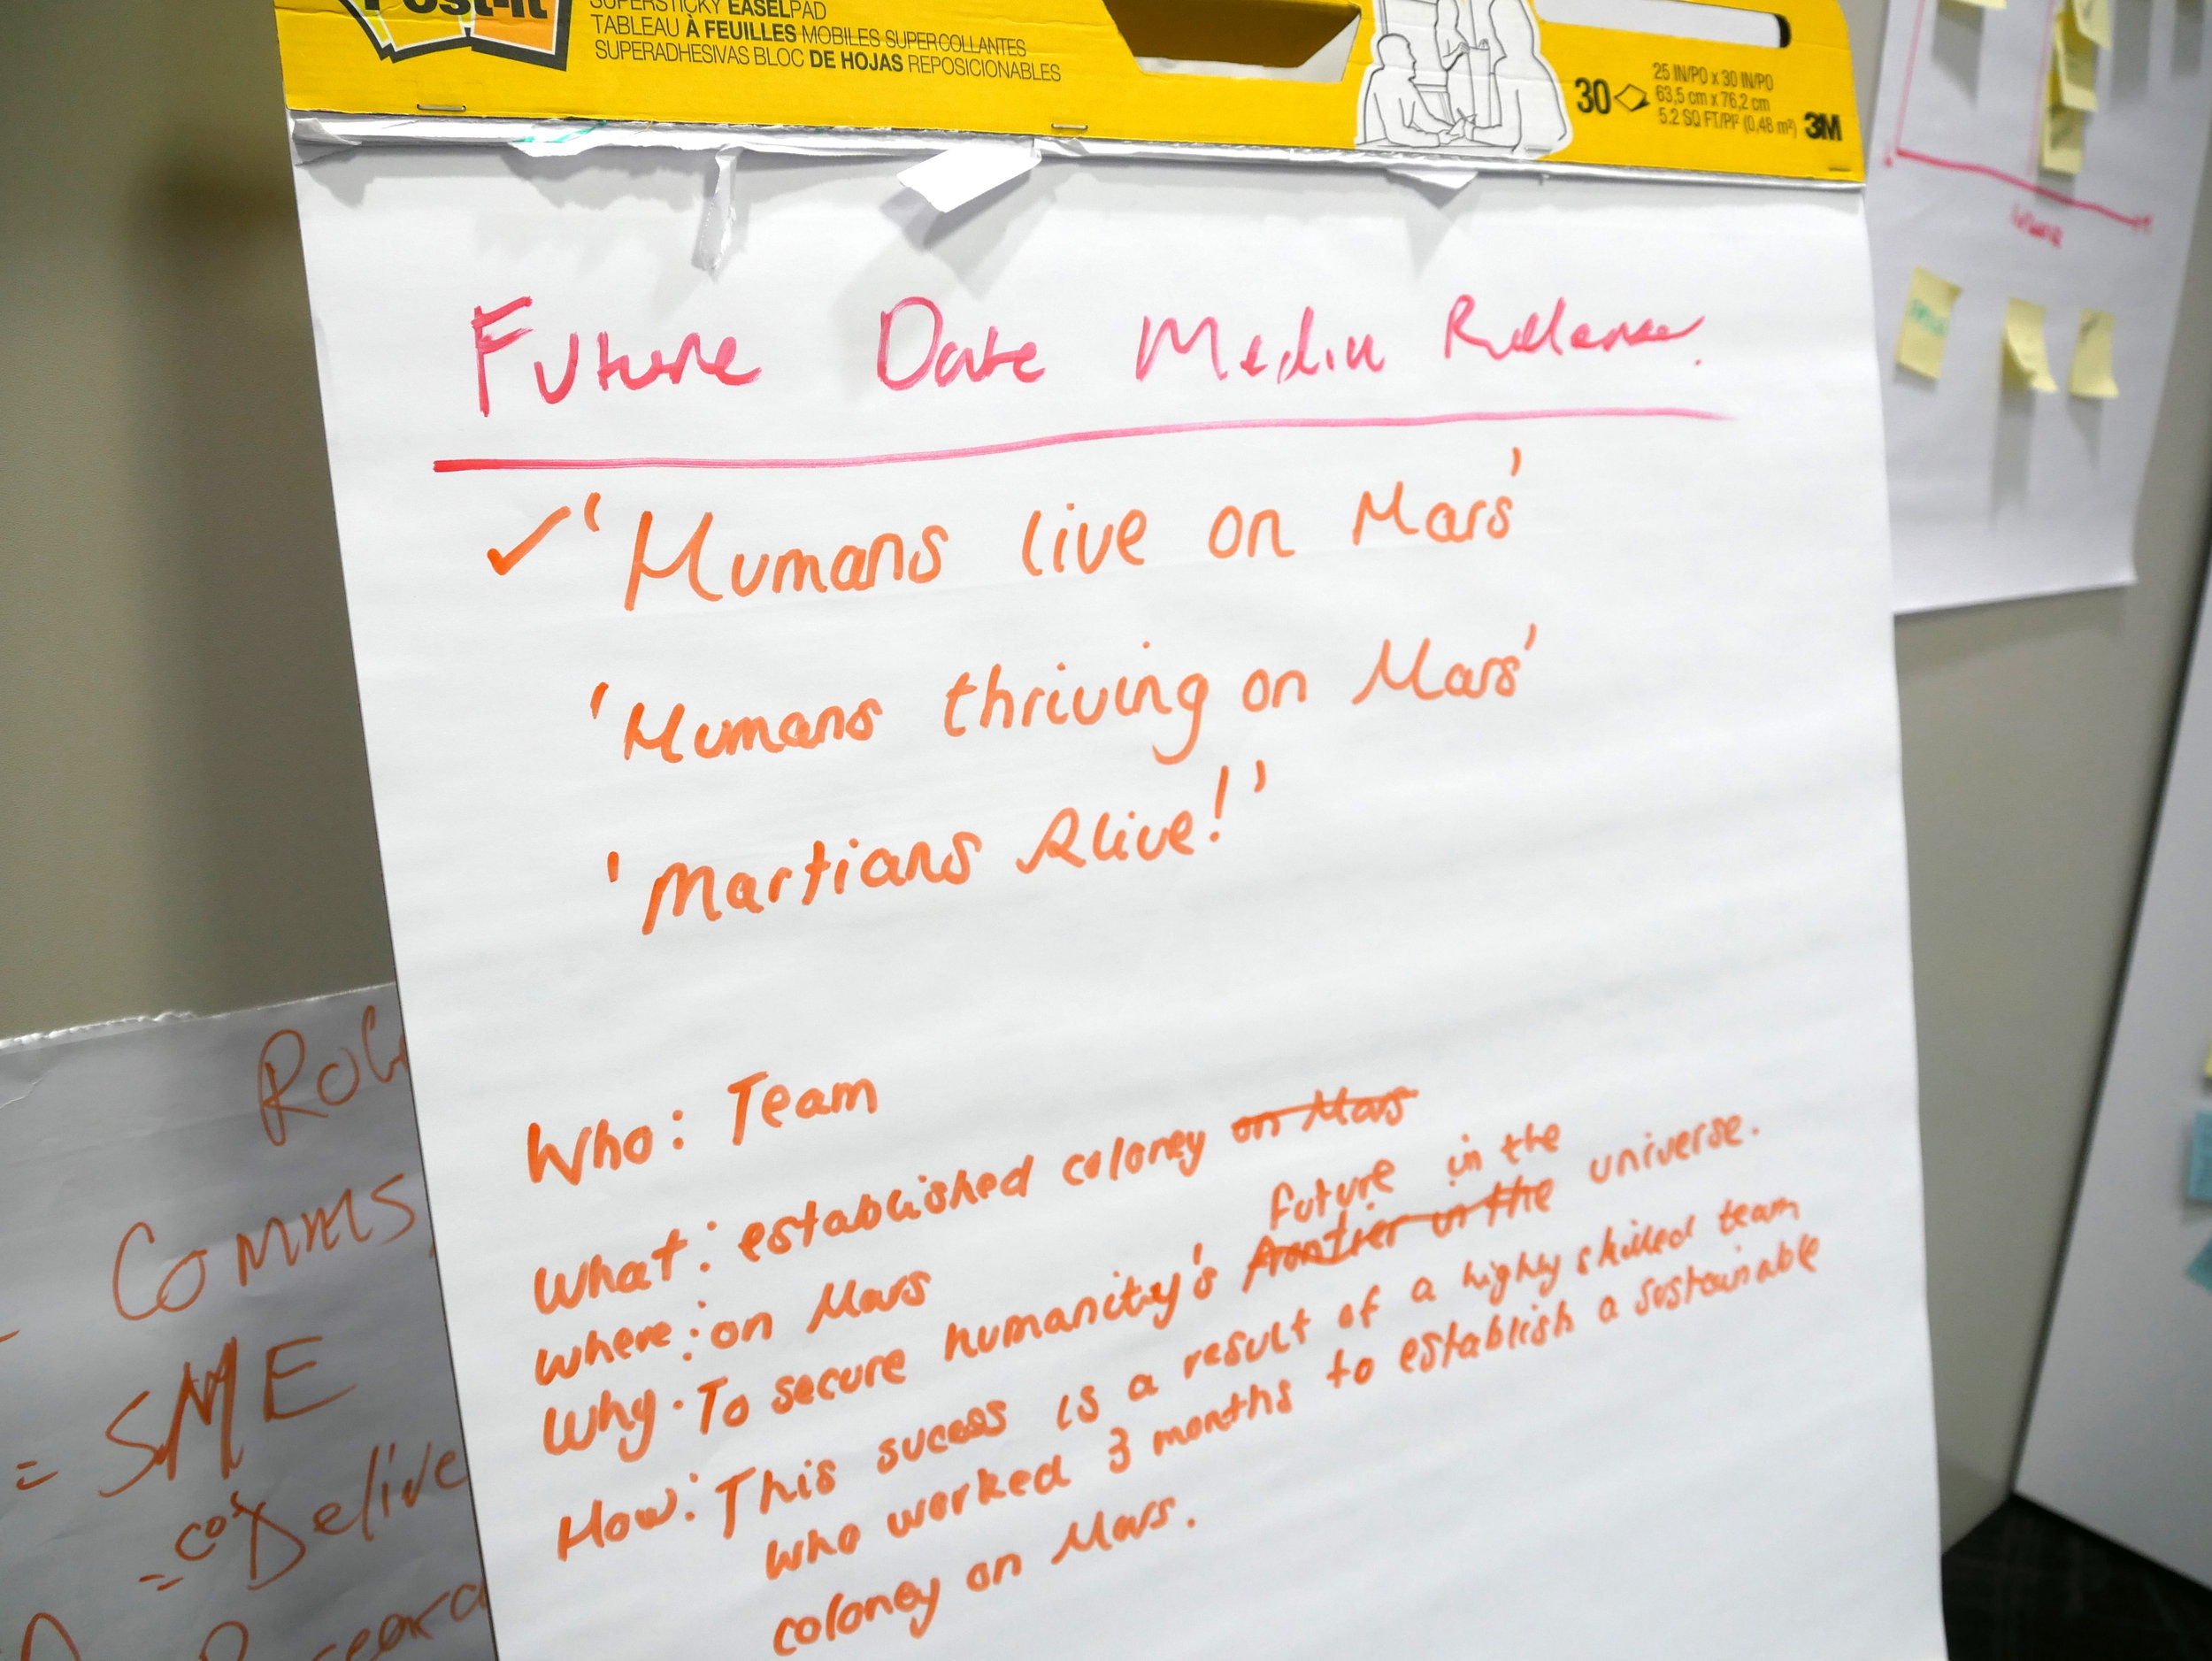 Post-it
SUPERSTICKY EASELPAD
TABLEAU À FEUILLES MOBILES SUPERCOLLANTES
SUPERADHESIVAS BLOC DE HOJAS REPOSICIONABLES
30
25 IN/PO x 30 IN/PO
63,5 cm x 76,2 cm
5.2 SQ FT/PI² (0,48 m²)
3M
Future Date Media Release.
✓ 'Humans live on Mars'
'Humans thriving on Mars'
'Martians Alive!'
Who: Team
What: established coloney on Mars
Where: on Mars
future in the
Why. To secure humanity's frontier in the universe.
How: This sucess is a result of a highly skilled team
who worked 3 months to establish a sustainable
coloney on Mars.
Comms
= SME